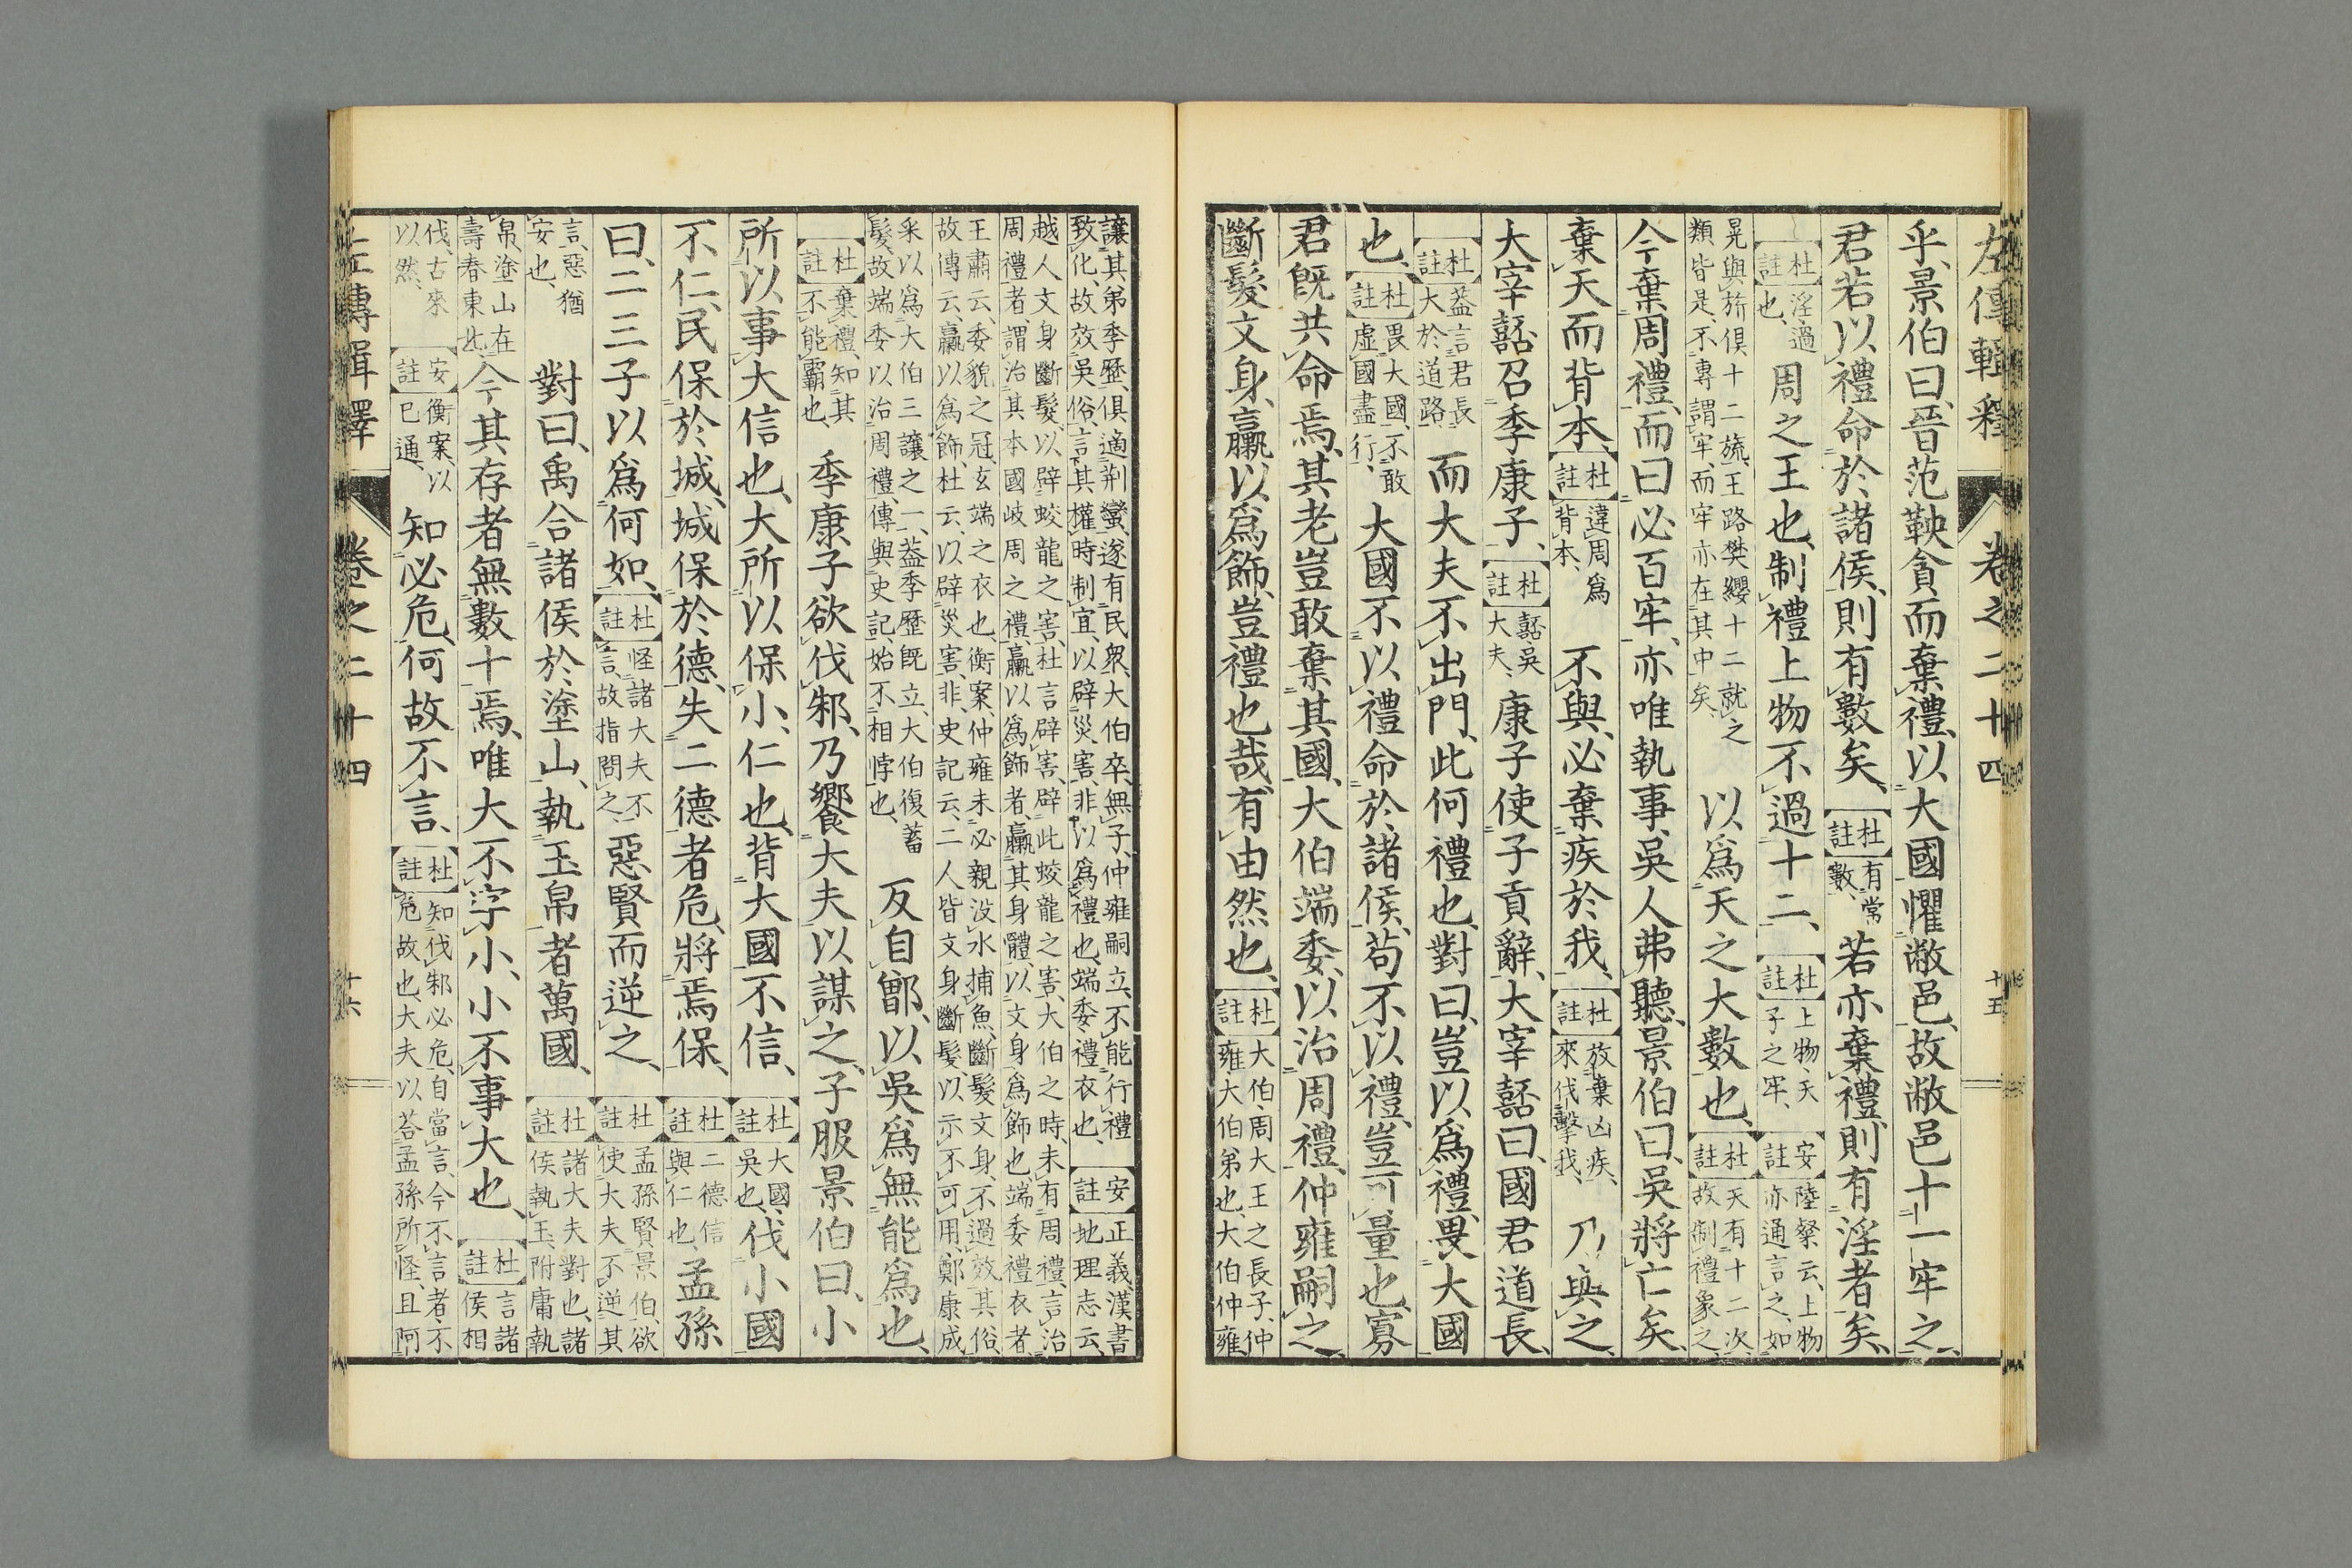 左傳輯釋 卷之二十四 十五
乎、景伯曰、晉范鞅貪而棄禮、以大國懼敝邑、故敝邑十一牢之、
君若以禮命於諸侯、則有數矣、杜註有常數、若亦棄禮、則有淫者矣、
杜註淫、過也、周之王也、制禮上物不過十二、杜註上物、天子之牢、安註陸粲云、上物亦通言之、如
冕與旂俱十二旒、王路樊纓十二就之類皆是、不專謂牢、而牢亦在其中矣、以爲天之大數也、杜註天有十二次、故制禮象之、
今棄周禮、而曰必百牢、亦唯執事、吳人弗聽、景伯曰、吳將亡矣、
棄天而背本、杜註違周爲背本、不與、必棄疾於我、杜註放棄凶疾、來伐擊我、乃與之、
大宰嚭召季康子、杜註嚭、吳大夫、康子使子貢辭、大宰嚭曰、國君道長、
杜註蓋言君長大於道路、而大夫不出門、此何禮也、對曰、豈以爲禮、畏大國
也、杜註畏大國、不敢虛國盡行、大國不以禮命於諸侯、苟不以禮、豈可量也、寡
君既共命焉、其老豈敢棄其國、大伯端委、以治周禮、仲雍嗣之、
斷髮文身、贏以爲飾、豈禮也哉、有由然也、杜註大伯、周大王之長子、仲雍、大伯弟也、大伯仲雍
讓其弟季歷、俱適荆蠻、遂有民衆、大伯卒、無子、仲雍嗣立、不能行禮致化、故效吳俗、言其權時制宜、以辟災害、非以爲禮也、端委禮衣也、安註正義漢書地理志云、
越人文身斷髮、以辟蛟龍之害、杜言辟害、辟此蛟龍之害、大伯之時、未有周禮、言治周禮者、謂治其本國岐周之禮、贏以爲飾者、贏其身體、以文身爲飾也、端委禮衣者
王肅云、委貌之冠玄端之衣也、衡案仲雍未必親沒水捕魚、斷髮文身、不過效其俗、故傳云、贏以爲飾、杜云、以辟災害、非、史記云、二人皆文身斷髮、以示不可用、鄭康成
采以爲大伯三讓之一、蓋季歷既立、大伯復蓄髮、故端委以治周禮、傳與史記、始不相悖也、反自鄫、以吳爲無能爲也、
杜註棄禮、知其不能霸也、季康子欲伐邾、乃饗大夫以謀之、子服景伯曰、小
所以事大信也、大所以保小、仁也、背大國不信、杜註大國、吳也、伐小國
不仁、民保於城、城保於德、失二德者危、將焉保、杜註二德信與仁也、孟孫
曰、二三子以爲何如、杜註怪諸大夫不言、故指問之、惡賢而逆之、杜註孟孫賢景伯、欲使大夫不逆其
言、惡猶安也、對曰、禹合諸侯於塗山、執玉帛者萬國、杜註諸大夫對也、諸侯執玉、附庸執
帛、塗山在壽春東北、今其存者無數十焉、唯大不字小、小不事大也、杜註言諸侯相
伐、古來以然、安註衡案、以已通、知必危、何故不言、杜註知伐邾必危、自當言、今不言者、不危故也、大夫以荅孟孫所怪、且阿
左傳輯釋 卷之二十四 十六